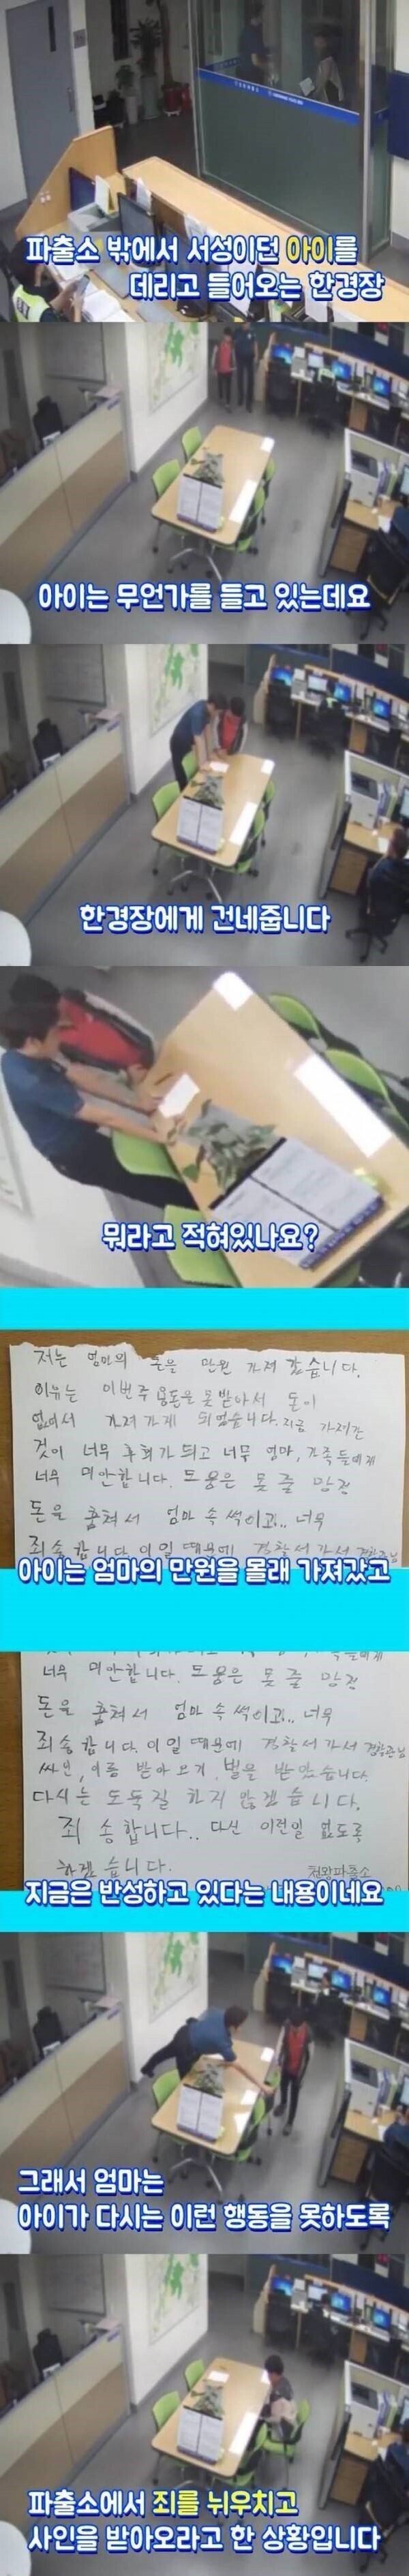 파출소 밖에서 서성이던 아이를
데리고 들어오는 한경장
아이는 무언가를 들고 있는데요
한경장에게 건네줍니다
뭐라고 적혀있나요?
저는 엄마의 돈을 만원 가져 갔습니다.
이유는 이번주 용돈을 못받아서 돈이
없어서 가져가게 되었습니다. 지금 가져간
것이 너무 후회가 되고 너무 엄마, 가족들에게
너무 미안합니다. 도움은 못 줄 망정
돈을 훔쳐서 엄마 속 썩이고.. 너무
죄송합니다. 이일 때문에 경찰서 가서 경찰관님
아이는 엄마의 만원을 몰래 가져갔고
너무 미안합니다. 도움은 못 줄 망정
돈을 훔쳐서 엄마 속 썩이고.. 너무
죄송합니다. 이일 때문에 경찰서 가서 경찰관님
싸인, 이름 받아오기 벌을 받았습니다.
다시는 도둑질 하지 않겠습니다.
죄송합니다.. 다신 이런일 없도록
하겠습니다.
천왕파출소
지금은 반성하고 있다는 내용이네요
그래서 엄마는
아이가 다시는 이런 행동을 못하도록
파출소에서 죄를 뉘우치고
사인을 받아오라고 한 상황입니다